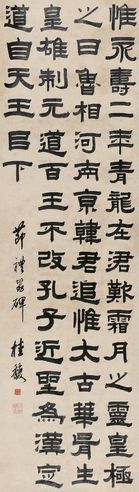 惟永壽二年青龍在君歎霜月之靈皇極
之日魯相河南京韓君追惟太古華胥生
皇雄制元道百王不改孔子近聖為漢定
道自天王㠯下
節禮器碑 桂馥